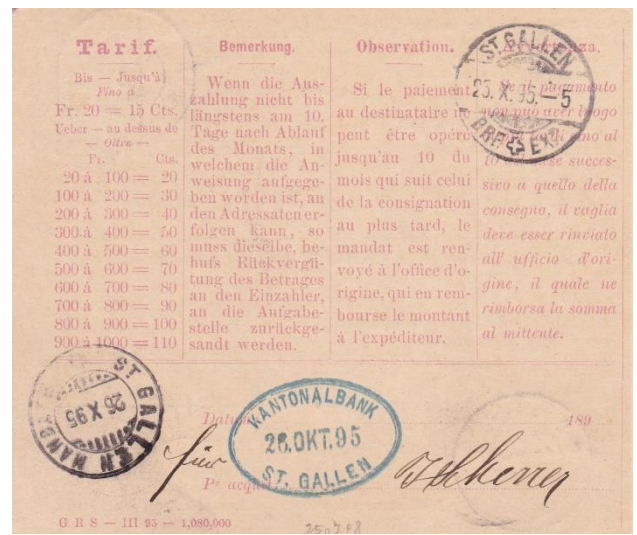 Tarif.
Bis — Jusqu'à
Fino a
Fr. 20 = 15 Cts.
Ueber — au dessus de
— Oltre —
Fr. Cts.
20 à 100 = 20
100 à 200 = 30
200 à 300 = 40
300 à 400 = 50
400 à 500 = 60
500 à 600 = 70
600 à 700 = 80
700 à 800 = 90
800 à 900 = 100
900 à 1000 = 110
Bemerkung.
Wenn die Aus-
zahlung nicht bis
längstens am 10.
Tage nach Ablauf
des Monats, in
welchem die An-
weisung aufgege-
ben worden ist, an
den Adressaten er-
folgen kann, so
muss dieselbe, be-
hufs Rückvergü-
tung des Betrages
an den Einzahler,
an die Aufgabe-
stelle zurückge-
sandt werden.
Observation.
Si le paiement
au destinataire ne
peut être opéré
jusqu'au 10 du
mois qui suit celui
de la consignation
au plus tard, le
mandat est ren-
voyé à l'office d'o-
rigine, qui en rem-
bourse le montant
à l'expéditeur.
Avvertenza.
Se il pagamento
non può aver luogo
al
10 succes-
sivo a quello della
consegna, il vaglia
deve esser rinviato
all' ufficio d'ori-
gine, il quale ne
rimborsa la somma
al mittente.
ST. GALLEN
25.X.95.–5
BRF. EXP.
ST. GALLEN
26 X 95
Datum 189
KANTONALBANK
26.OKT.95
ST. GALLEN
für
Pr acquit
G R S — III 95 — 1,080,000